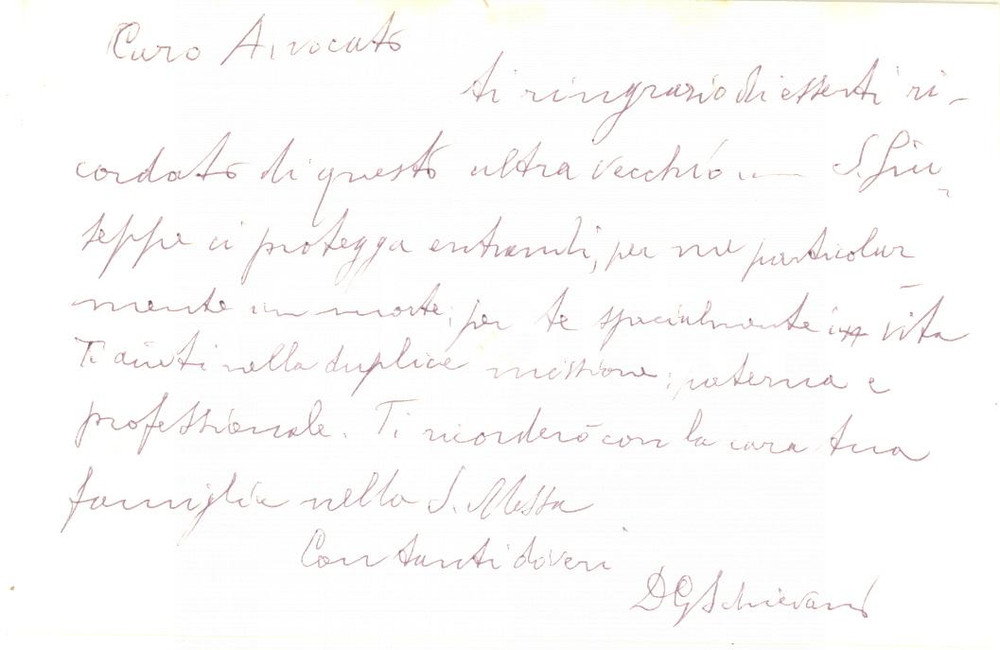 Caro Avvocato
ti ringrazio di esserti ri-
cordato di questo ultra vecchio. — S. Giu-
seppe ci protegga entrambi, per me particolar-
mente in morte; per te specialmente in vita
Ti aiuti nella duplice missione: paterna e
professionale. Ti ricorderò con la cara tua
famiglia nella S. Messa
Con tanti doveri